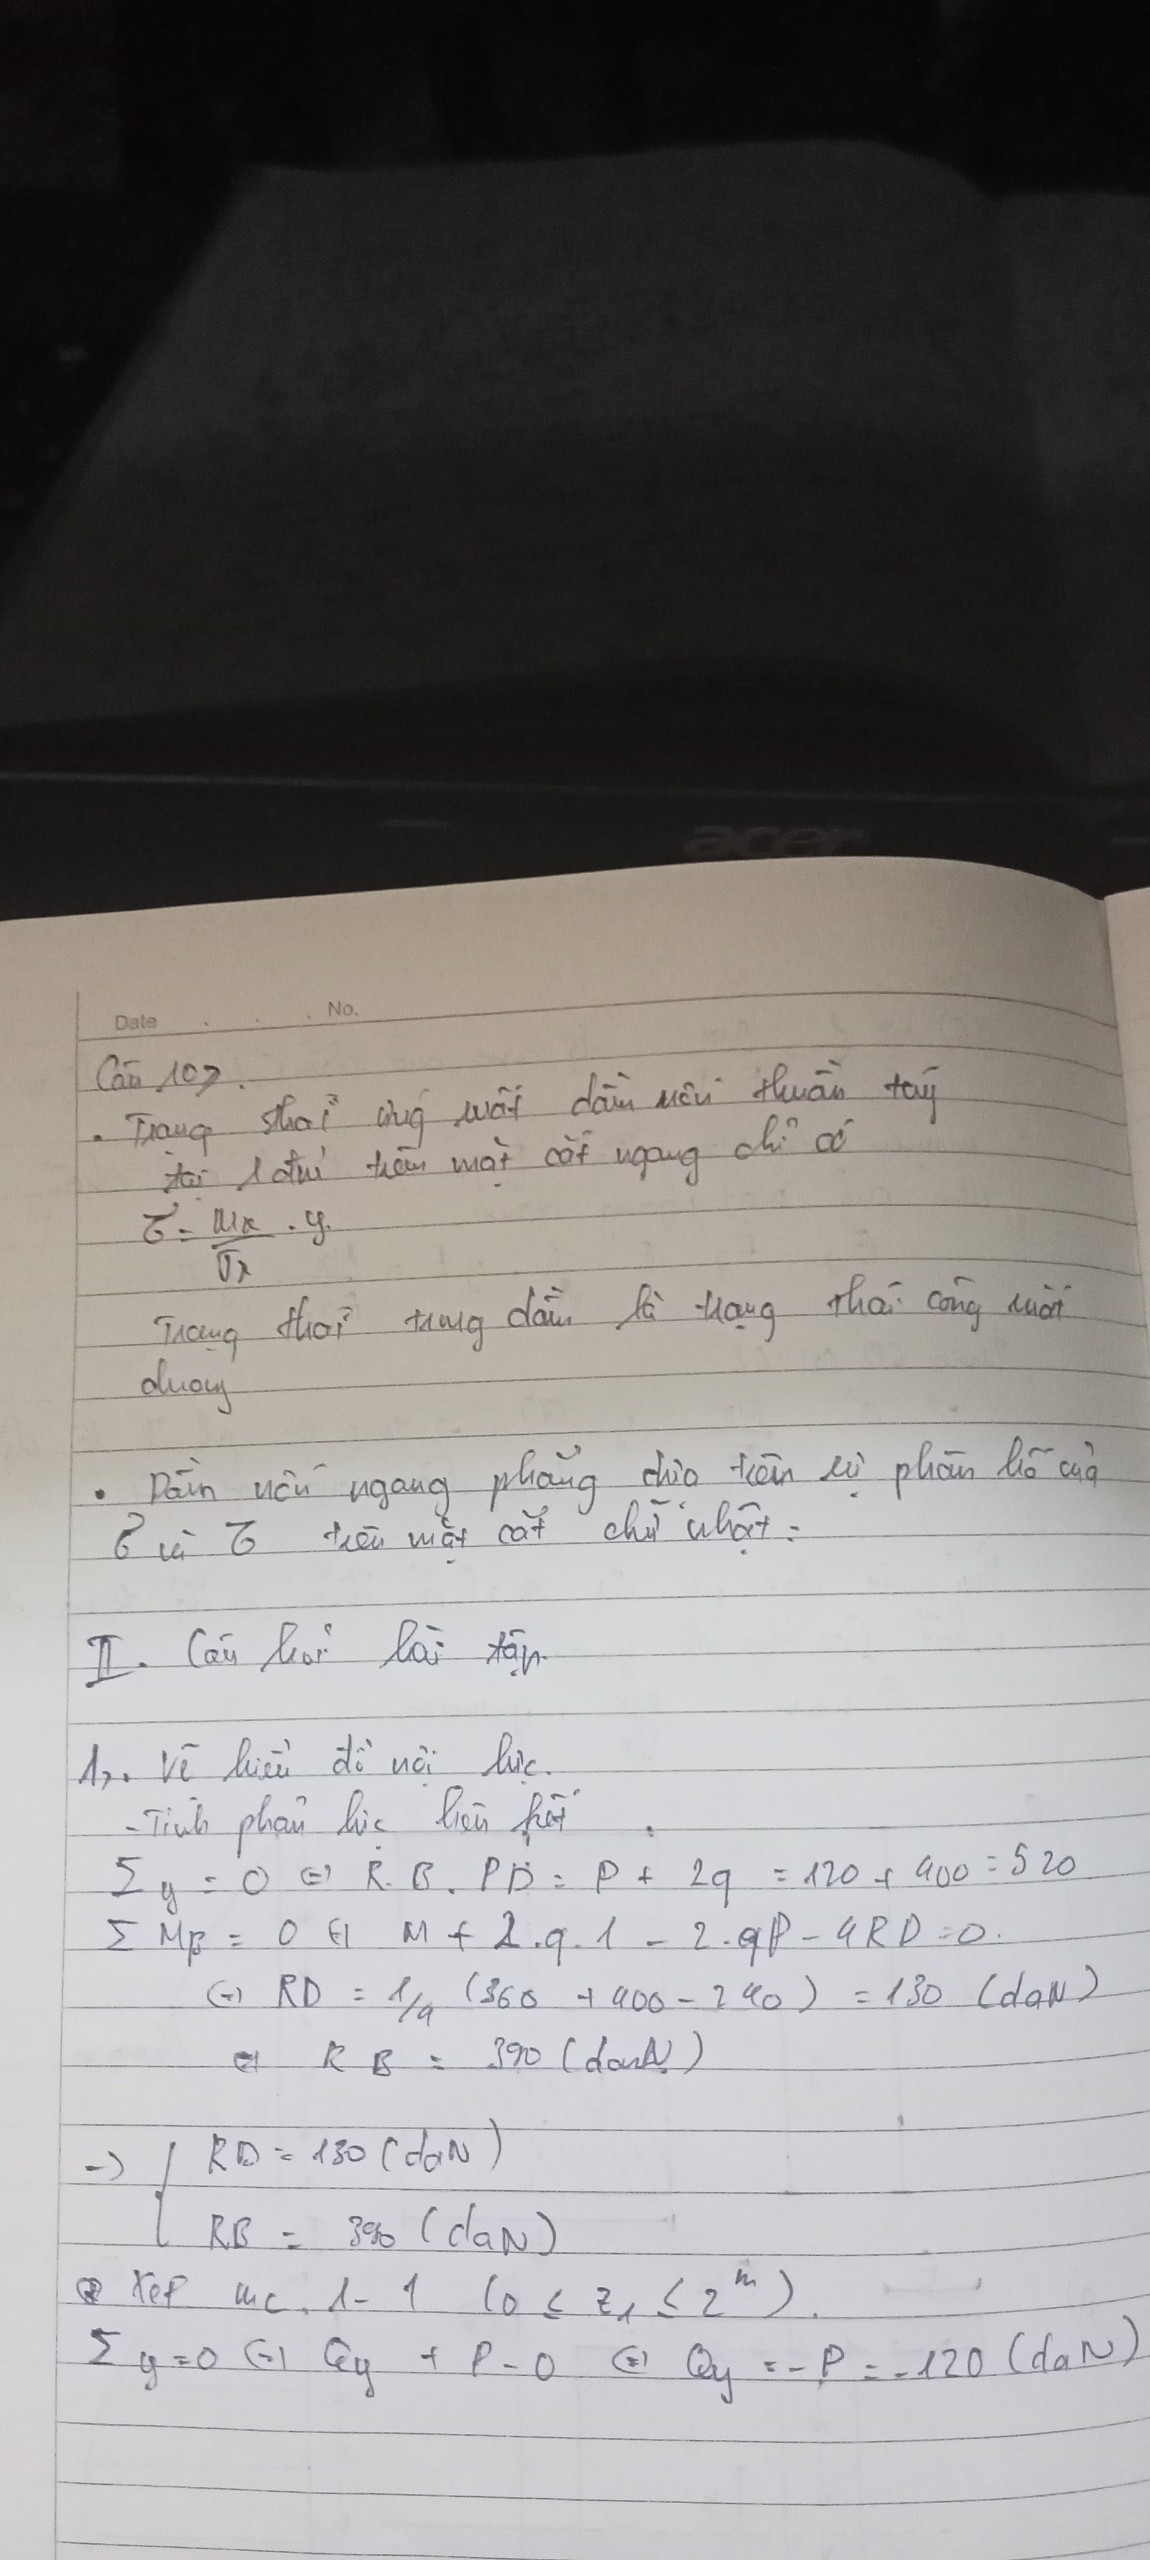 acer
Date . . . No.
Câu 10>.
. Trạng thái ứng suất dầm uốn thuần tuý
tại 1 điểm trên mặt cắt ngang chỉ có
= Mx/Jx . y.
Trạng thái trong dầm là trạng thái
. Dầm uốn ngang phẳng dựa trên sự phân bố của
σ và τ trên mặt cắt chữ nhật:
II. Câu hỏi bài tập
1,. Vẽ biểu đồ nội lực.
- Tính phản lực liên kết.
Σy = 0 ⇔ R.B. PD = P + 2q = 120 + 400 = 520
ΣMB = 0 ⇔ M + 2.q.1 - 2. - 4RD = 0.
⇔ RD = 1/4 (360 + 400 - 240) = 130 (daN)
⇔ RB = 390 (daN)
→ { RD = 130 (daN)
RB = 390 (daN)
Xét mc. 1-1 (0 ≤ z1 ≤ 2m).
Σy=0 ⇔ Qy + P - 0 ⇔ Qy = -P = -120 (daN)